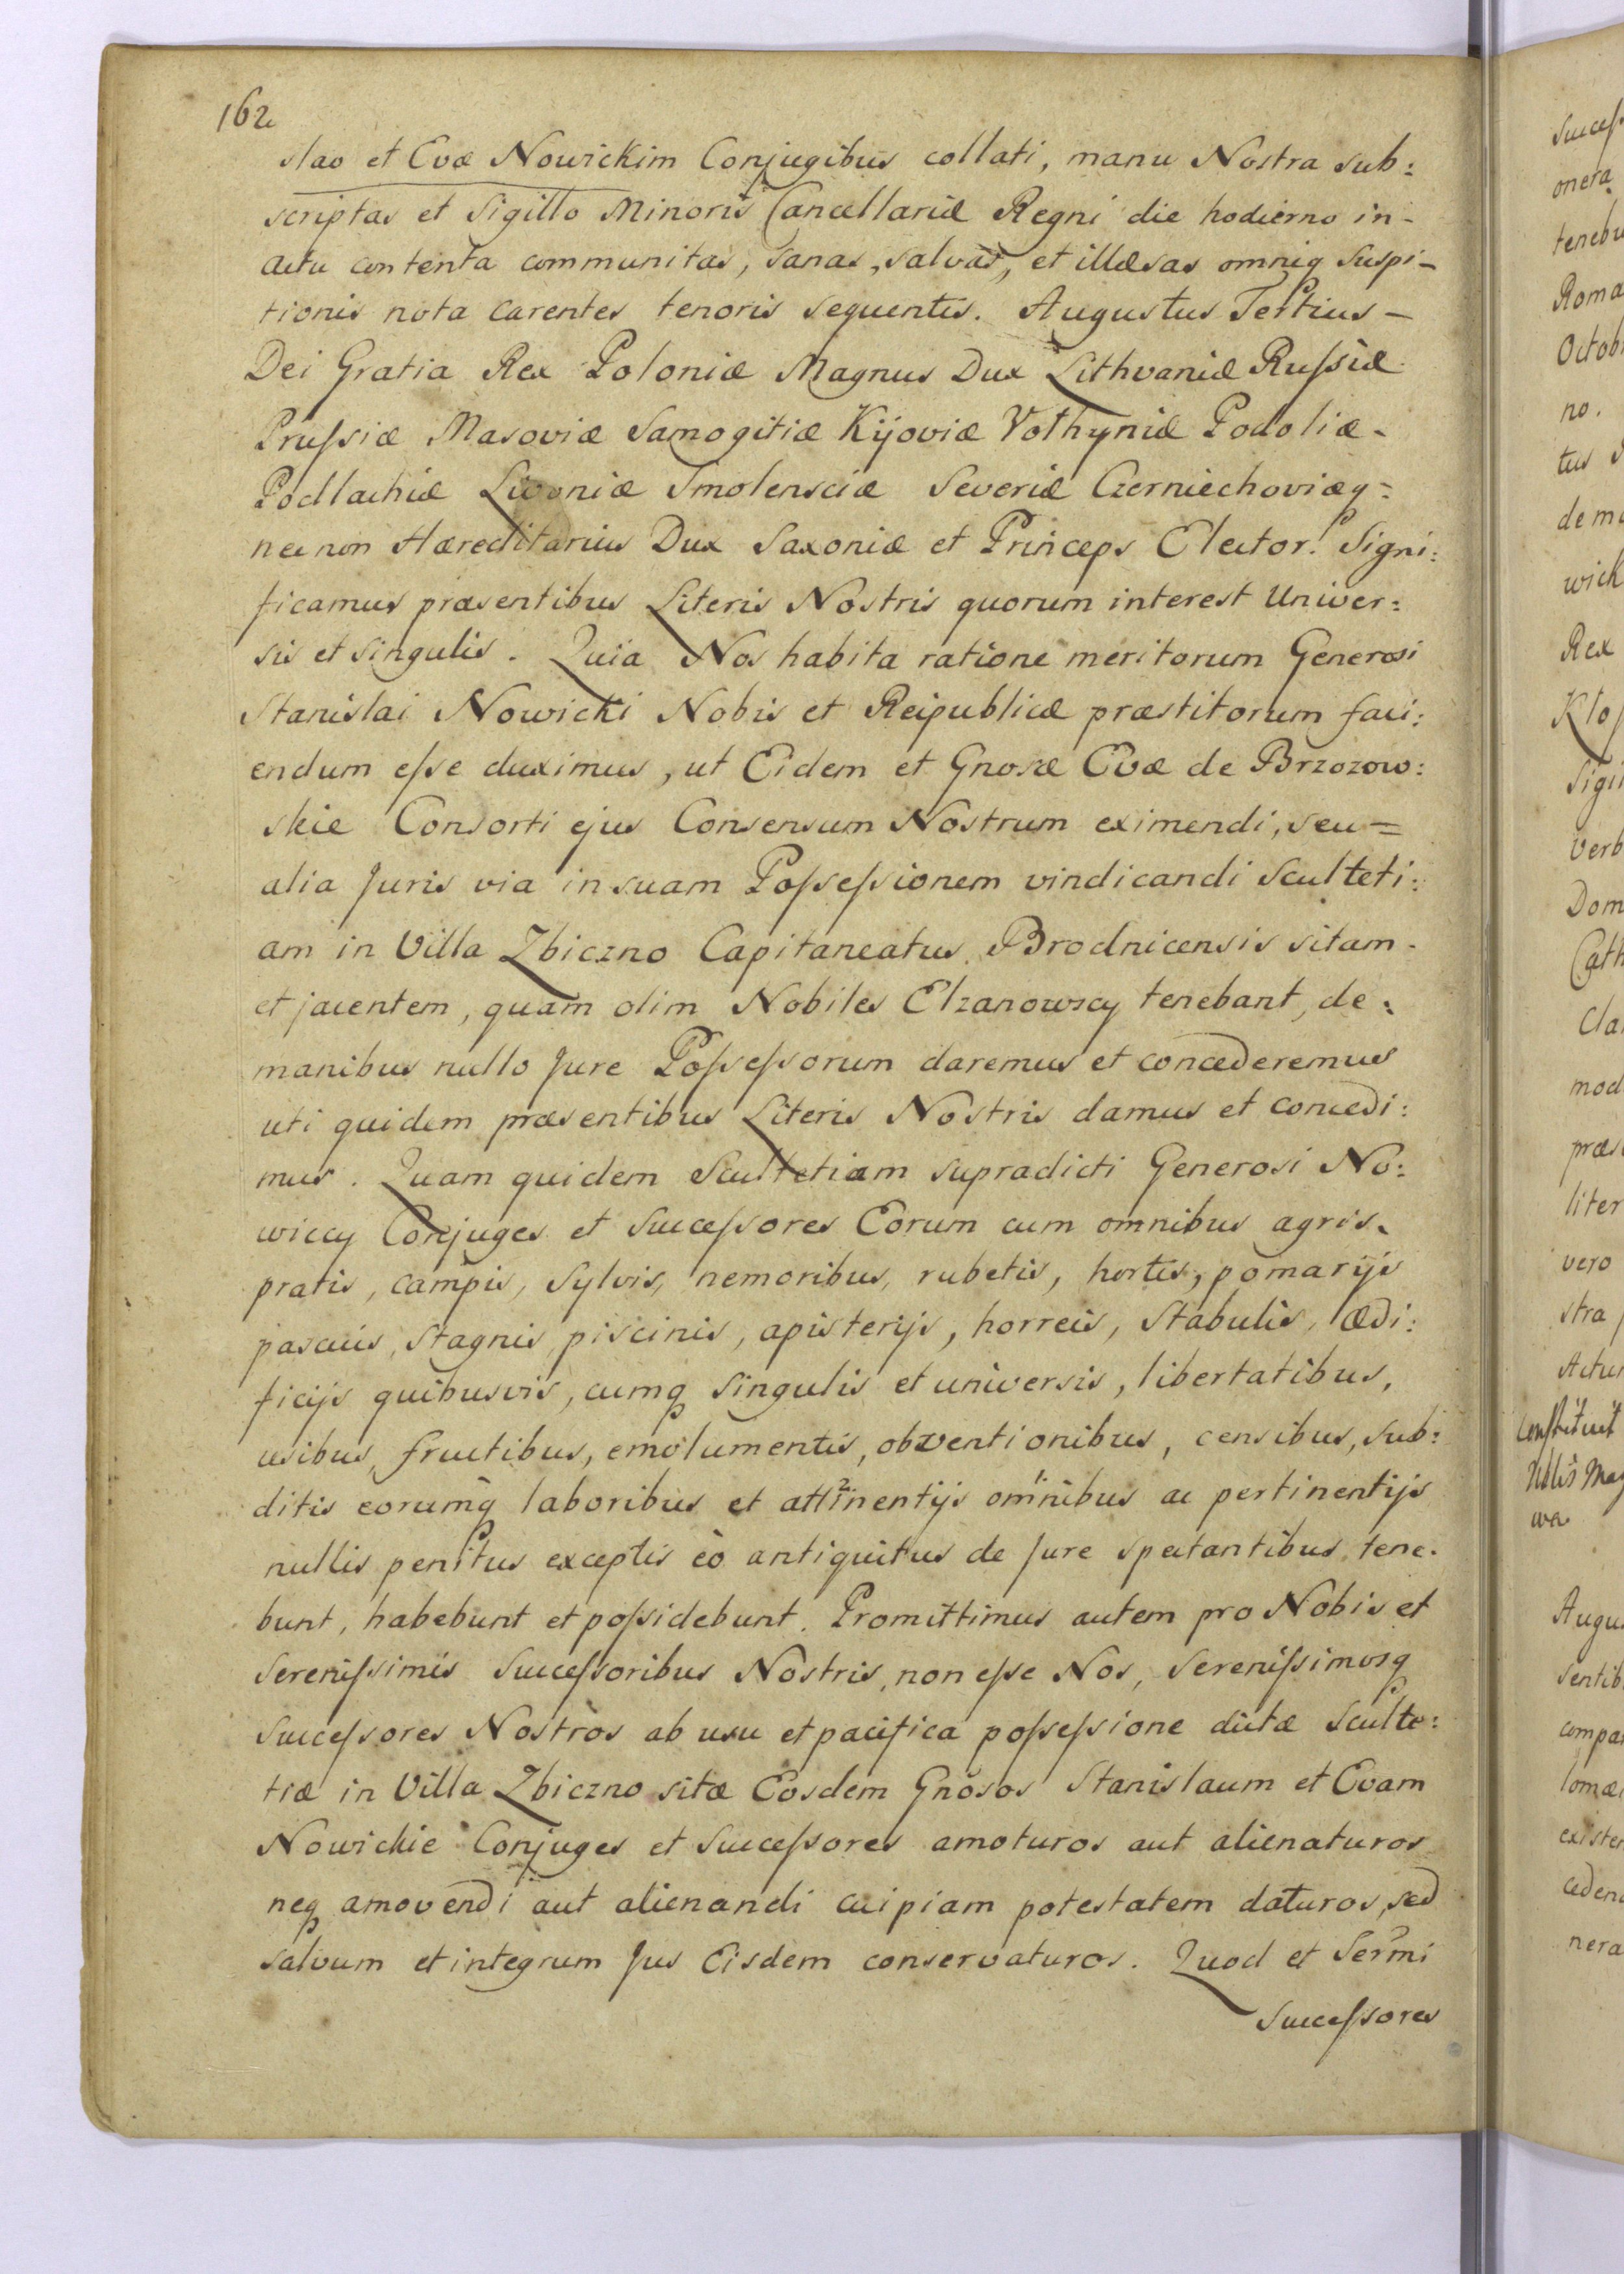 162
slao et Evæ Nowickim Conjugibus collati, manu Nostra sub:
scriptas et Sigillo Minoris Cancellariæ Regni die hodierno in-
actu contenta communitas, sanas, salvas, et illæsas omniq suspi-
tionis nota carentes tenoris sequentis. Augustus Tertius-
Dei Gratia Rex Poloniæ Magnus Dux Lithvaniæ Ruſsiæ
Pruſsiæ Masoviæ Samogitiæ Kijoviæ Volhyniæ Podoliæ-
Podlachiæ Livoniæ Smolensciæ Severiæ Czerniechoviæq=
nec non Hæreditarius Dux Saxoniæ et Princeps Elector. Signi:
ficamus præsentibus Literis Nostris quorum interest Univer:
sis et singulis. Quia Nos habita ratione meritorum Generosi
Stanislai Nowicki Nobis et Reipublicæ præstitorum faci:
endum eſse duximus, ut Eidem et Gnosæ Evæ de Brzozow:
skie Consorti ejus Consensum Nostrum eximendi, seu=
alia Juris via in suam Poſseſsionem vindicandi Sculteti:
am in Villa Zbiczno Capitaneatus Brodnicensis sitam-
et jacentem, quam olim Nobiles Elzanowscy tenebant, de:
manibus nullo Jure Poſseſsorum daremus et concederemus
uti quidem præsentibus Literis Nostris damus et concedi:
mus. Quam quidem Scultetiam supradicti Generosi No:
wiccy Conjuges et Succeſsores Eorum cum omnibus agris,
pratis, campis, Sylvis, nemoribus, rubetis, hortis, pomarijs
pascuis, Stagnis, piscinis, apisterijs, horreis, Stabulis, ædi:
ficijs quibusvis, cumq singulis et universis, libertatibus,
usibus, fructibus, emolumentis, obventionibus, censibus, sub:
ditis eorumq laboribus et attinentijs omnibus ac pertinentijs
nullis penitus exceptis eò antiquitus de Jure spectantibus tene.
bunt, habebunt et poſsidebunt. Promittimus autem pro Nobis et
Sereniſsimis Succeſsoribus Nostris, non eſse Nos, Sereniſsimosq
Succeſsores Nostros ab usu et pacifica poſseſsione dictæ Sculte:
tiæ in Villa Zbiczno sitæ Eosdem Gnosos Stanislaum et Evam
Nowickie Conjuges et Succeſsores amoturos aut alienaturos
neq amovendi aut alienandi cuipiam potestatem daturos, sed
salvum et integrum Jus Eisdem conservaturos. Quod et Sermi
Succeſsores